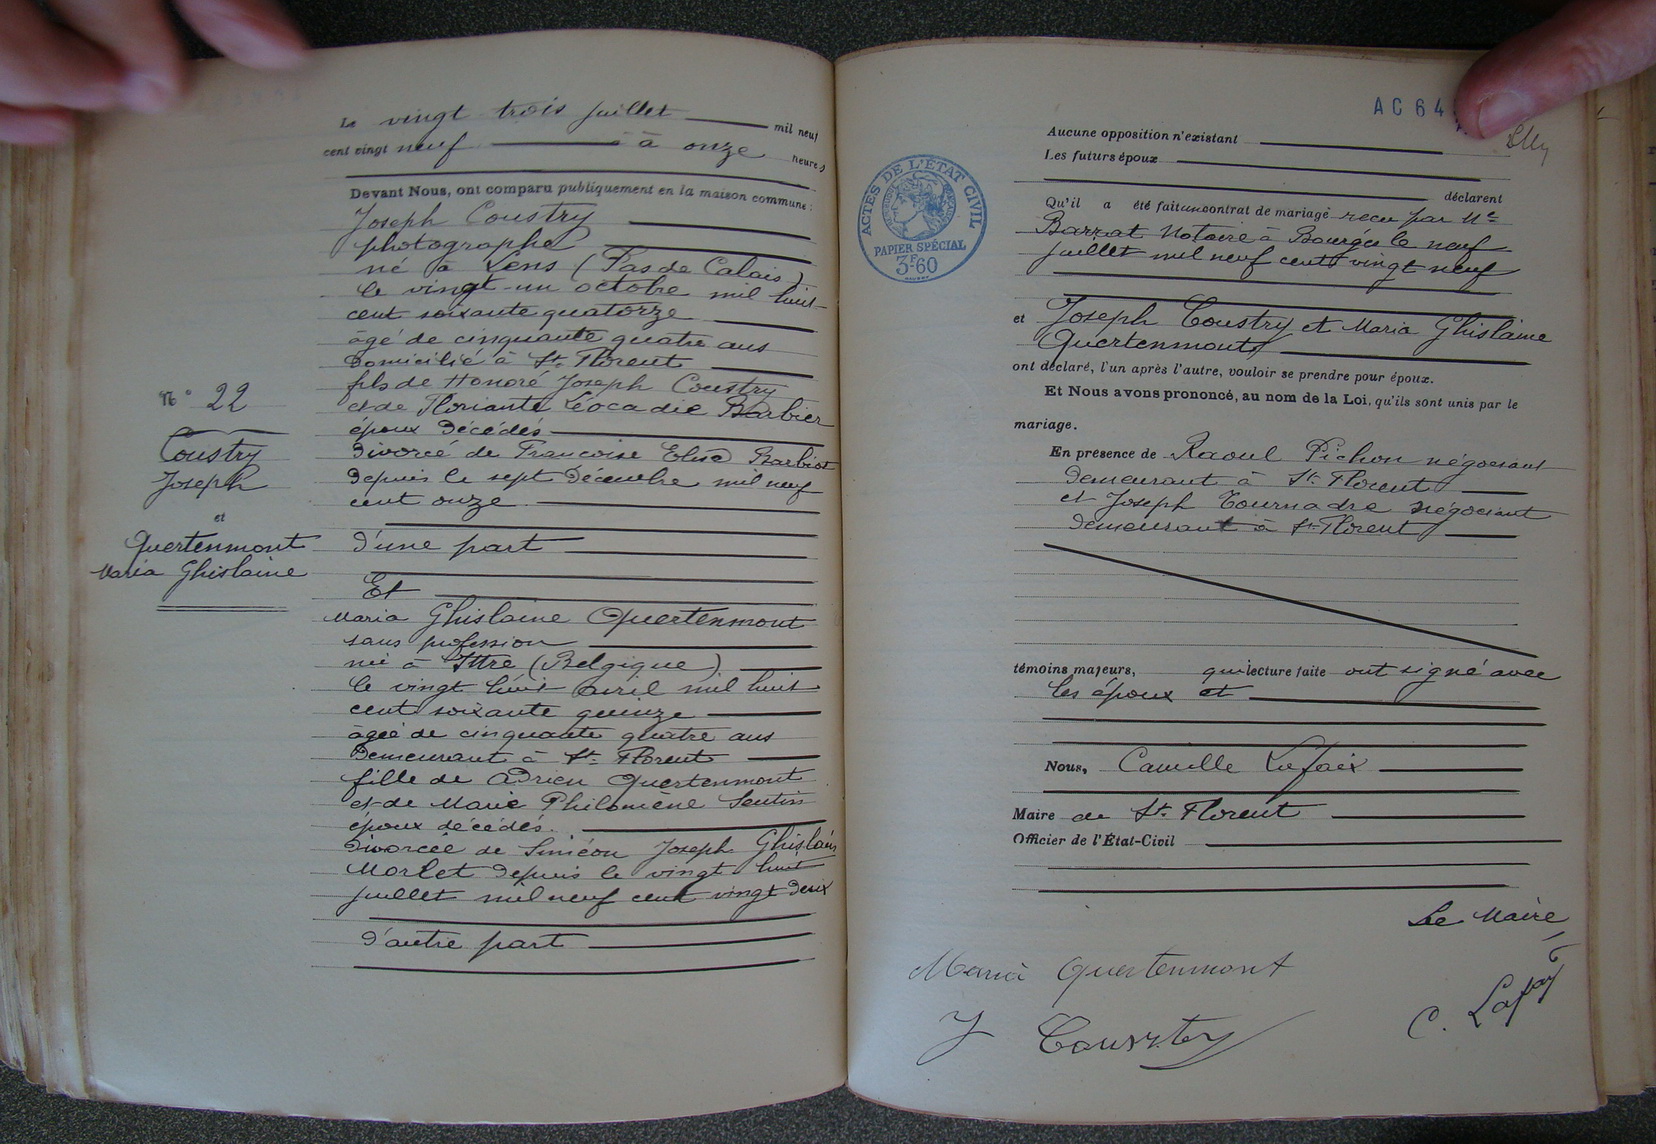 Le vingt trois juillet mil neuf
cent vingt neuf à onze heures
Devant Nous, ont comparu publiquement en la maison commune:
Joseph Coustry
photographe
né à Lens (Pas de Calais)
le vingt-un octobre mil huit
cent soixante quatorze
âgé de cinquante quatre ans
domicilié à St Florent
fils de Honoré Joseph Coustry
et de Floriante Léocadie Barbier
époux décédés
divorcé de Françoise Elisa Barbiot
depuis le sept Décembre mil neuf
cent onze
d'une part
Et
Maria Ghislaine Quertenmont
sans profession
née à Ittre (Belgique)
le vingt huit avril mil huit
cent soixante quinze
âgée de cinquante quatre ans
Demeurant à St Florent
fille de Adrien Quertenmont
et de Marie Philomène Sentin
époux décédés.
divorcée de Siméon Joseph Ghislain
Morlet depuis le vingt huit
juillet mil neuf cent vingt deux
d'autre part
N° 22
Coustry
Joseph
et
Quertenmont
Maria Ghislaine
AC 64
ACTES DE L'ETAT CIVIL
PAPIER SPÉCIAL
3F60
Aucune opposition n'existant
Les futurs époux
déclarent
Qu'il a été fait un contrat de mariage reçu par Me
Barrat Notaire à Bourges le neuf
juillet mil neuf cent vingt neuf
et Joseph Coustry et Maria Ghislaine
Quertenmont
ont déclaré, l'un après l'autre, vouloir se prendre pour époux.
Et Nous avons prononcé, au nom de la Loi, qu'ils sont unis par le
mariage.
En présence de Raoul Pichon négociant
demeurant à St Florent
et Joseph Tournadre négociant
demeurant à St Florent
témoins majeurs, qui lecture faite ont signé avec
les époux et
Nous, Camille Lafaix
Maire de St Florent
Officier de l'État-Civil
Le Maire,
Maria Quertenmont
J Coustry
C. Lafaix